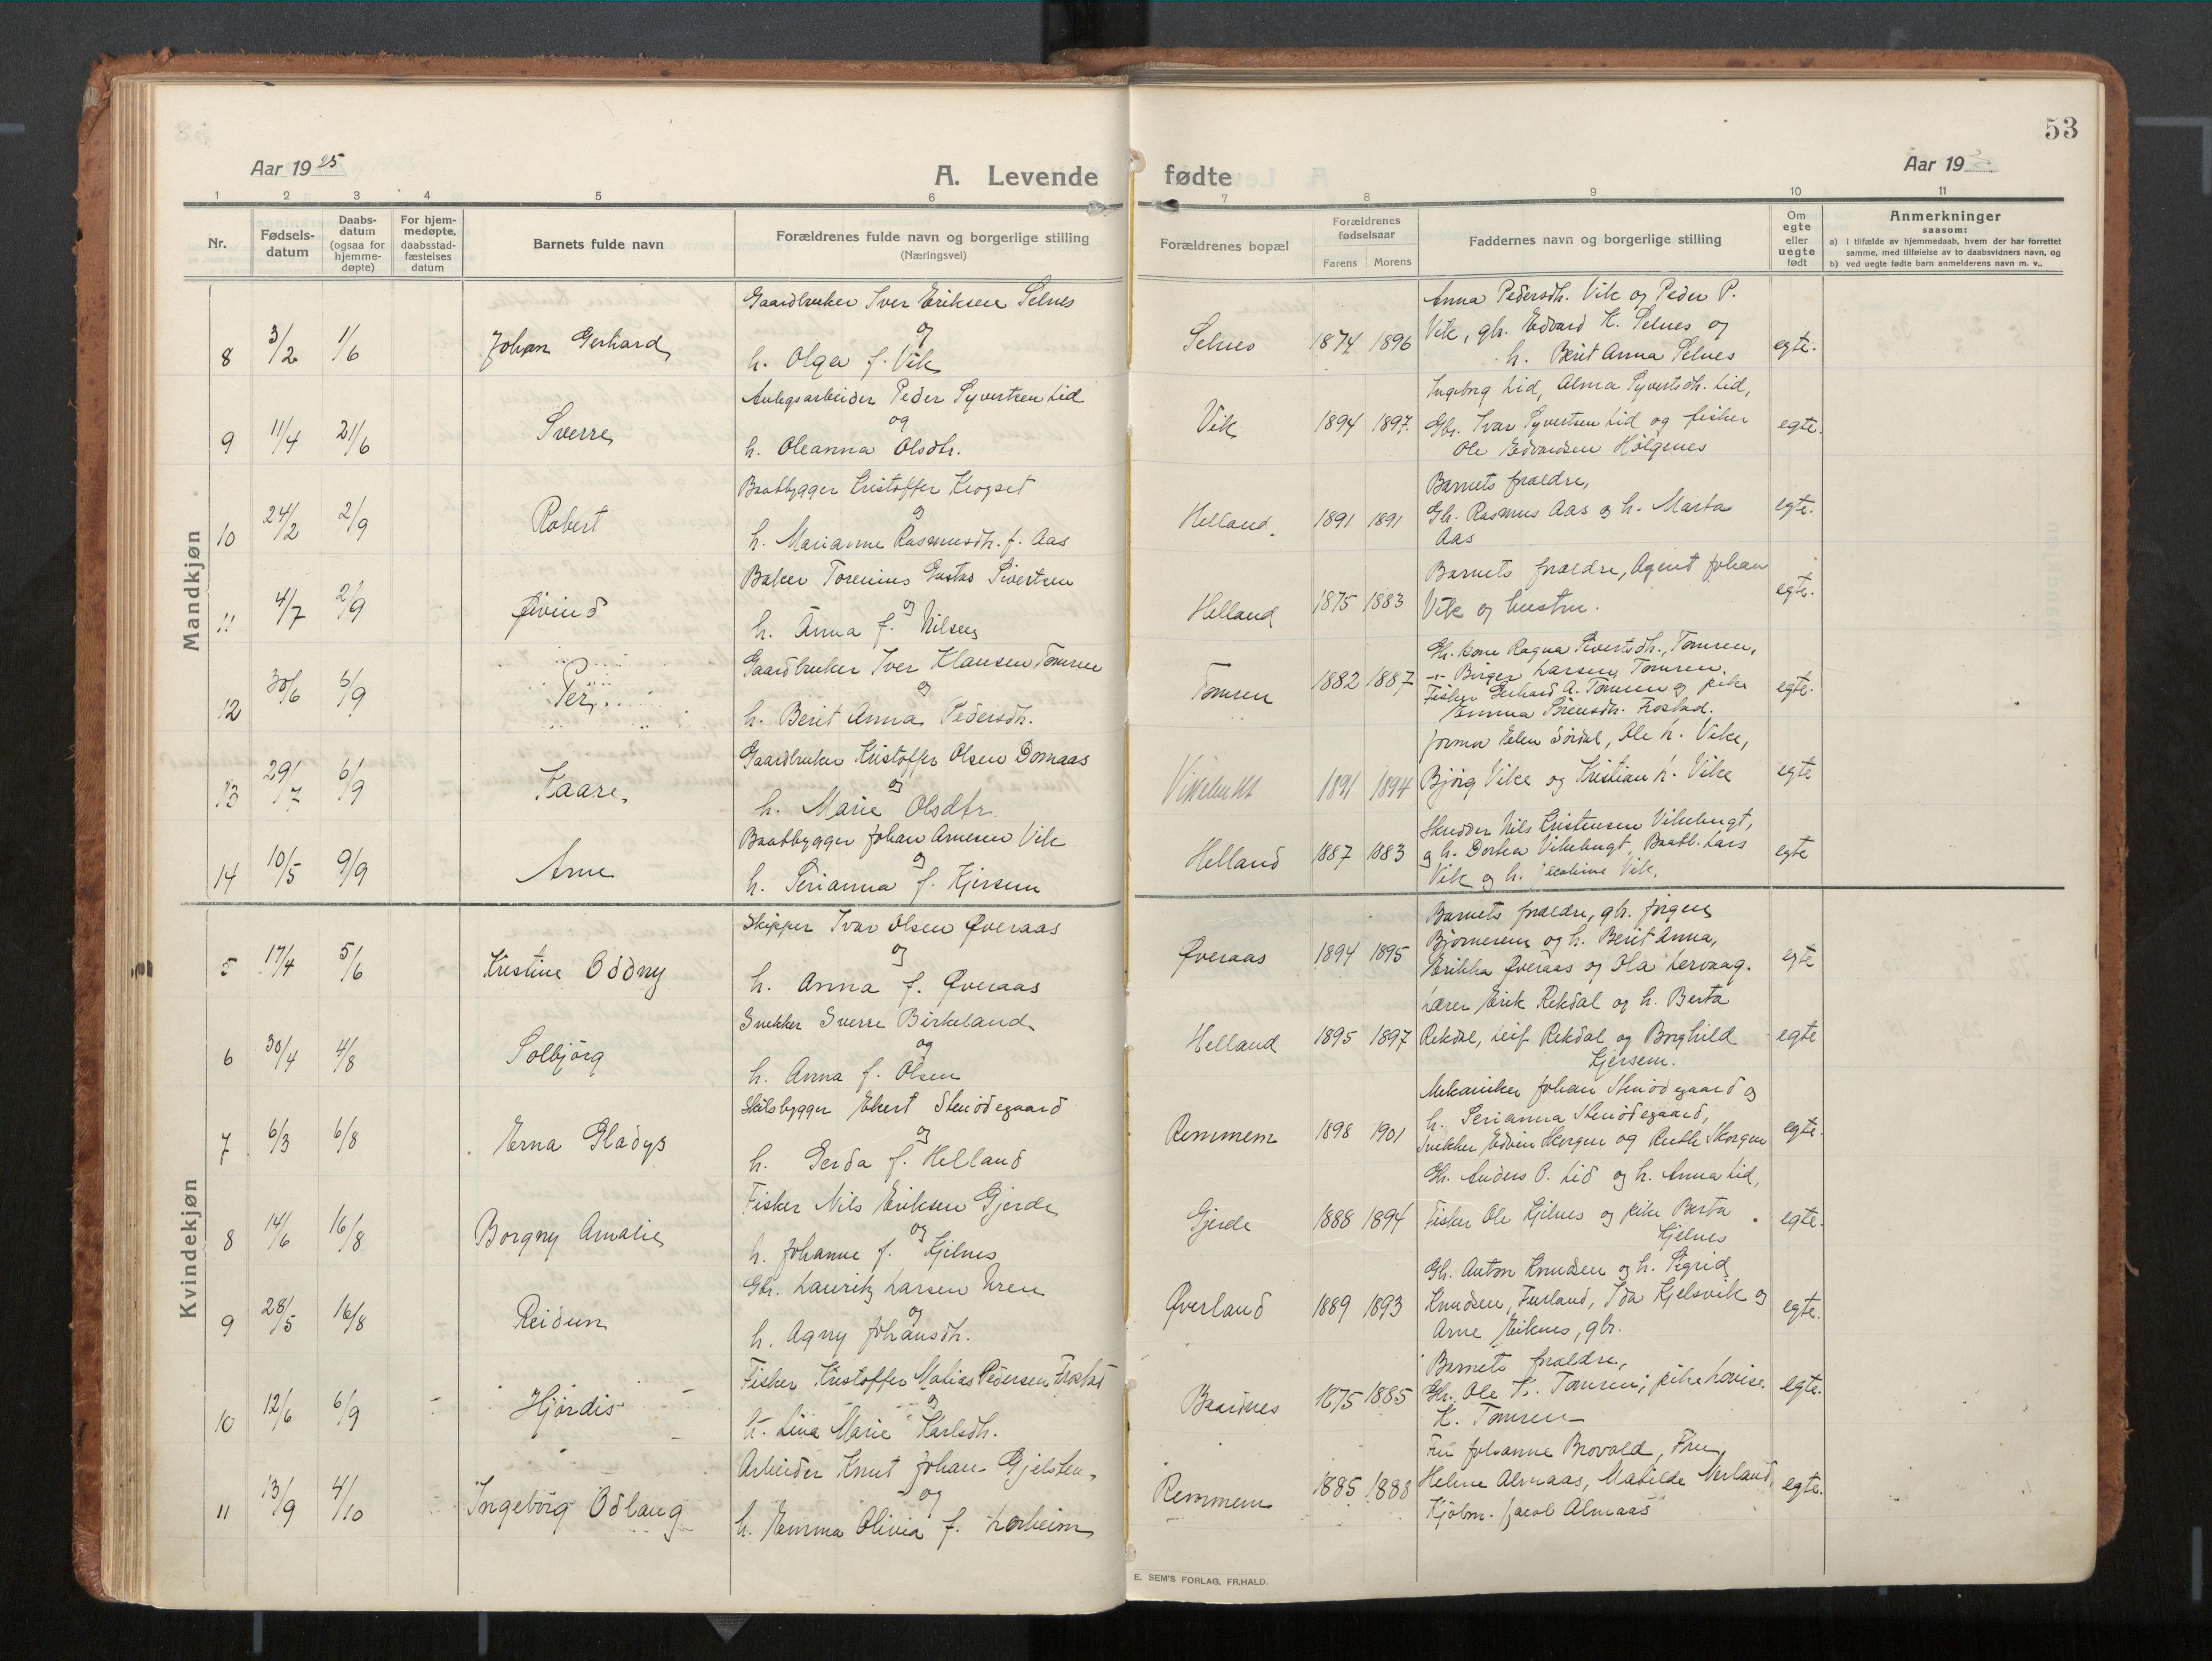 53
Aar 1925
A. Levende fødte
Aar 19
1 2 3 4 5 6 7 8 9 10 11
Nr.
Fødsels-
datum
Daabs-
datum
(ogsaa for
hjemme-
døpte)
For hjem-
medøpte,
daabsstad-
fæstelses
datum
Barnets fulde navn
Forældrenes fulde navn og borgerlige stilling
(Næringsvei)
Forældrenes bopæl
Forældrenes
fødselsaar
Farens Morens
Faddernes navn og borgerlige stilling
Om
egte
eller
uegte
født
Anmerkninger
saasom:
a) i tilfælde av hjemmedaab, hvem der har forrettet
samme, med tilføielse av to daabsvidners navn, og
b) ved uegte fødte barn anmelderens navn m. v..
Mandkjøn
Gaardbruker Iver Eriksen Selnes
og
8 3/2 1/6 Johan Gerhard
h. Olga f. Vik
Selnes 1874 1896
Anna Pedersdh. Vik og Peder P.
Vik, gbr. Edvard K. Selnes og
h. Berit Anna Selnes
egte.
Anlegsarbeider Peder Syvertsen Lid
og
9 11/4 21/6 Sverre
h. Oleanna Olsdtr.
Vik 1894 1897.
Ingeborg Lid, Alma Syvertsdh. Lid,
Gbr. Ivar Syvertsen Lid og fisker
Ole Edvardsen Hølgenes
egte.
Baatbygger Kristoffer Krogset
og
10 24/2 2/9 Robert
h. Marianne Rasmusdh. f. Aas
Helland 1891 1891
Barnets forældre,
Gbr. Rasmus Aas og h. Marta
Aas
egte.
Baker Torenius Gustav Sivertsen
og
11 4/7 2/9 Øivind
h. Anna f. Nilsen
Helland 1875 1883
Barnets forældre, Agent Johan
Vik og hustru.
egte.
Gaardbruker Iver Klausen Tomren
og
12 30/6 5/9 Per
h. Berit Anna Pedersdh.
Tomren 1882 1887
Gbr. kone Ragna Sivertsdh., Tomren,
-"- Birger Larsen, Tomren.
Fisker Gerhard A. Tomren og pike
Emma Sörensdh. Frostad.
egte.
Gaardbruker Kristoffer Olsen Domaas
og
13 29/7 6/9 Kaare
h. Marie Olsdtr.
Vikebukt 1891 1894
Jormor Elen Sördal, Ole h. Vike,
Bjørg Vike og Kristian h. Vike
egte
Baatbygger Johan Arnesen Vik
og
14 10/5 9/9 Arne
h. Serianna f. Kjersem
Helland 1887 1883
Skredder Nils Kristensen Vikebugt,
og h. Dortea Vikebugt, Baatb. Lars
Vik og h. Vik,
egte
Kvindekjøn
Skipper Ivar Olsen Øveraas
og
5 17/4 5/6 Kristine Oddny
h. Anna f. Øveraas
Øveraas 1894 1895
Barnets forældre, gbr. Jørgen
Bjørnerem og h. Berit Anna,
Erikka Øveraas og Ola Lervaag.
egte
Snekker Sverre Birkeland
og
6 30/4 4/8 Solbjörg
h. Anna f. Olsen
Helland 1895 1897
Lærer Erik Rekdal og h. Berta
Rekdal, Leif Rekdal og Borghild
Kjersem.
egte
Skibsbygger Ekert Stenødegaard
og
7 6/3 6/8 Erna Gladys
h. Gerda f. Helland
Remmem 1898 1901
Mekaniker Johan Stenødegaard og
h. Serianna Stenødegaard,
Snekker Edvin Skorgen og Ruth Skorgen
egte.
Fisker Nils Eriksen Gjerde
og
8 14/6 16/8 Borgny Amalie
h. Johanne f. Kjelnes
Gjerde 1888 1894
Gbr. Anders O. Lid og h. Anna Lid,
Fisker Ole Kjelnes og pike Berta
Kjelnes
egte.
Gbr. Lauritz Larsen Uren
og
9 28/5 16/8 Reidun
h. Agny Johansdh.
Øverland 1889 1893
Gbr. Anton Knudsen og h. Sigrid
Knudsen, Furland, Ida Kjelsvik og
Arne Eiknes, gbr.
egte.
Fisker Kristoffer Matias Pedersen Frostad
og
10 12/6 6/9 Hjørdis
h. Lina Marie Karlsdh.
Baardnes 1875 1885
Barnets forældre,
Gbr. Ole K. Tomren; pike Lovise
K. Tomren
egte.
Arbeider Knut Johan Gjelsten
og
11 13/9 4/10 Ingebörg Odlaug
h. Emma Olivia f. Lorheim
Remmem 1885 1888
Fru Johanne Brovold, Fru
Helene Almaas, Matilde Nerland,
Kjöbm. Jacob Almaas
egte.
E. SEM'S FORLAG, FR.HALD.